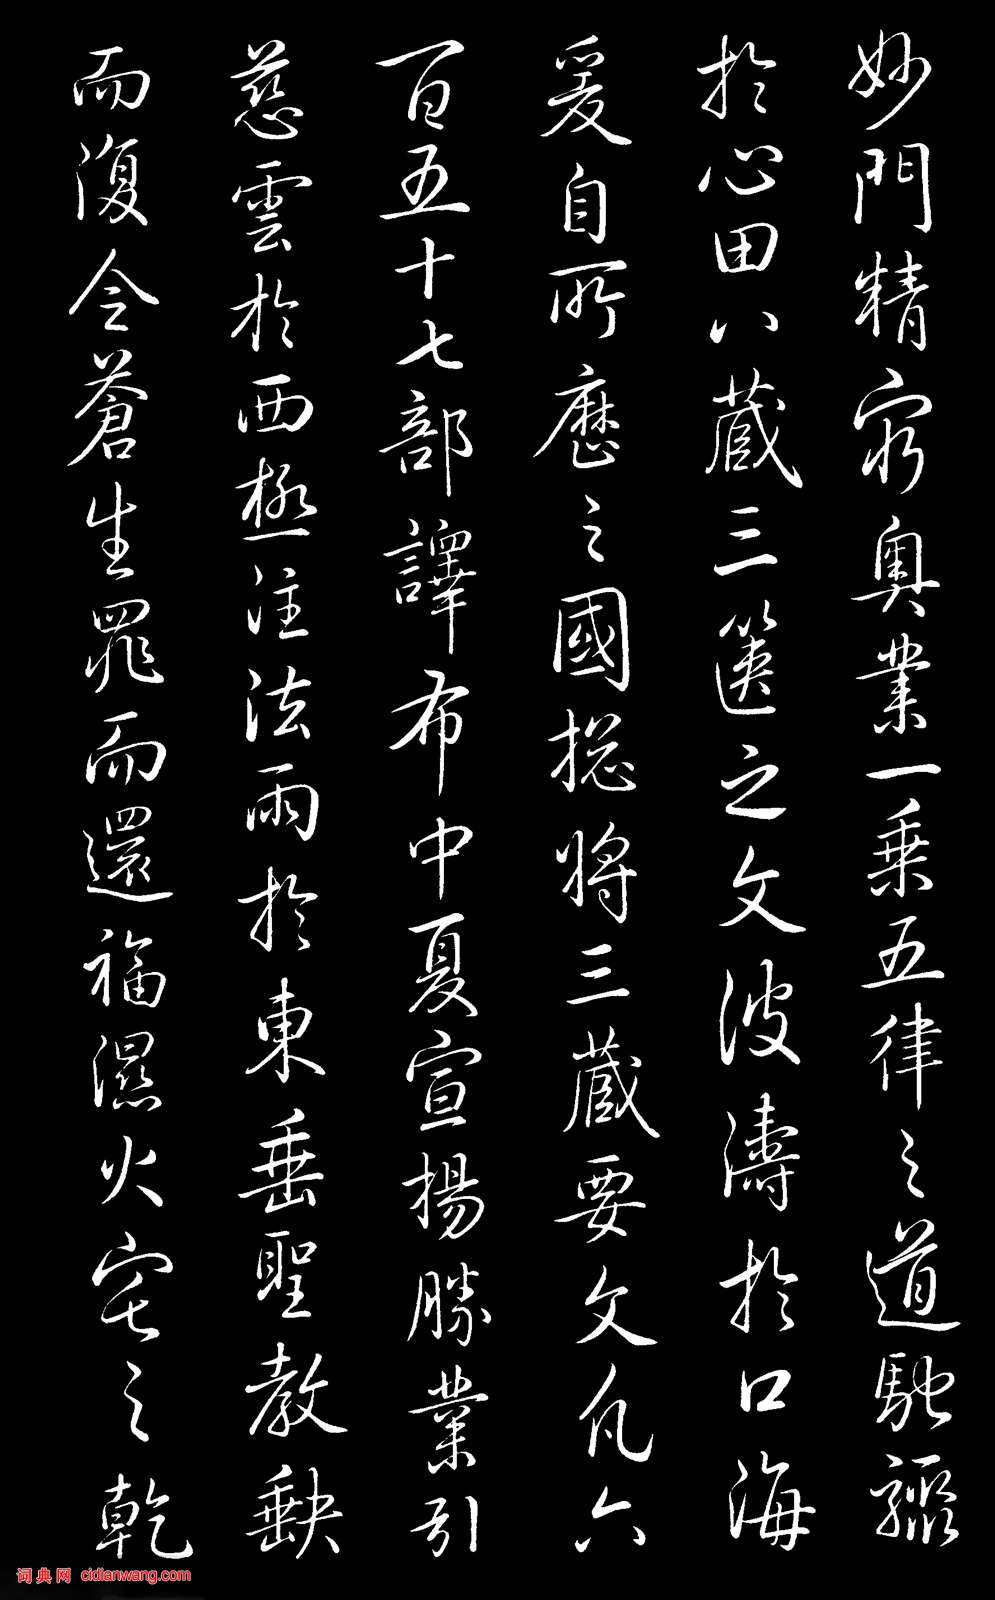 妙門精窮奧業一乗五律之道馳驟
於心田八蔵三篋之文波濤於口海
爰自所歷之國揔將三蔵要文凡六
百五十七部譯布中夏宣揚勝業引
慈雲於西極注法雨於東垂聖教缺
而復令蒼生罪而還福濕火宅之乾
词典网 cidianwang.com